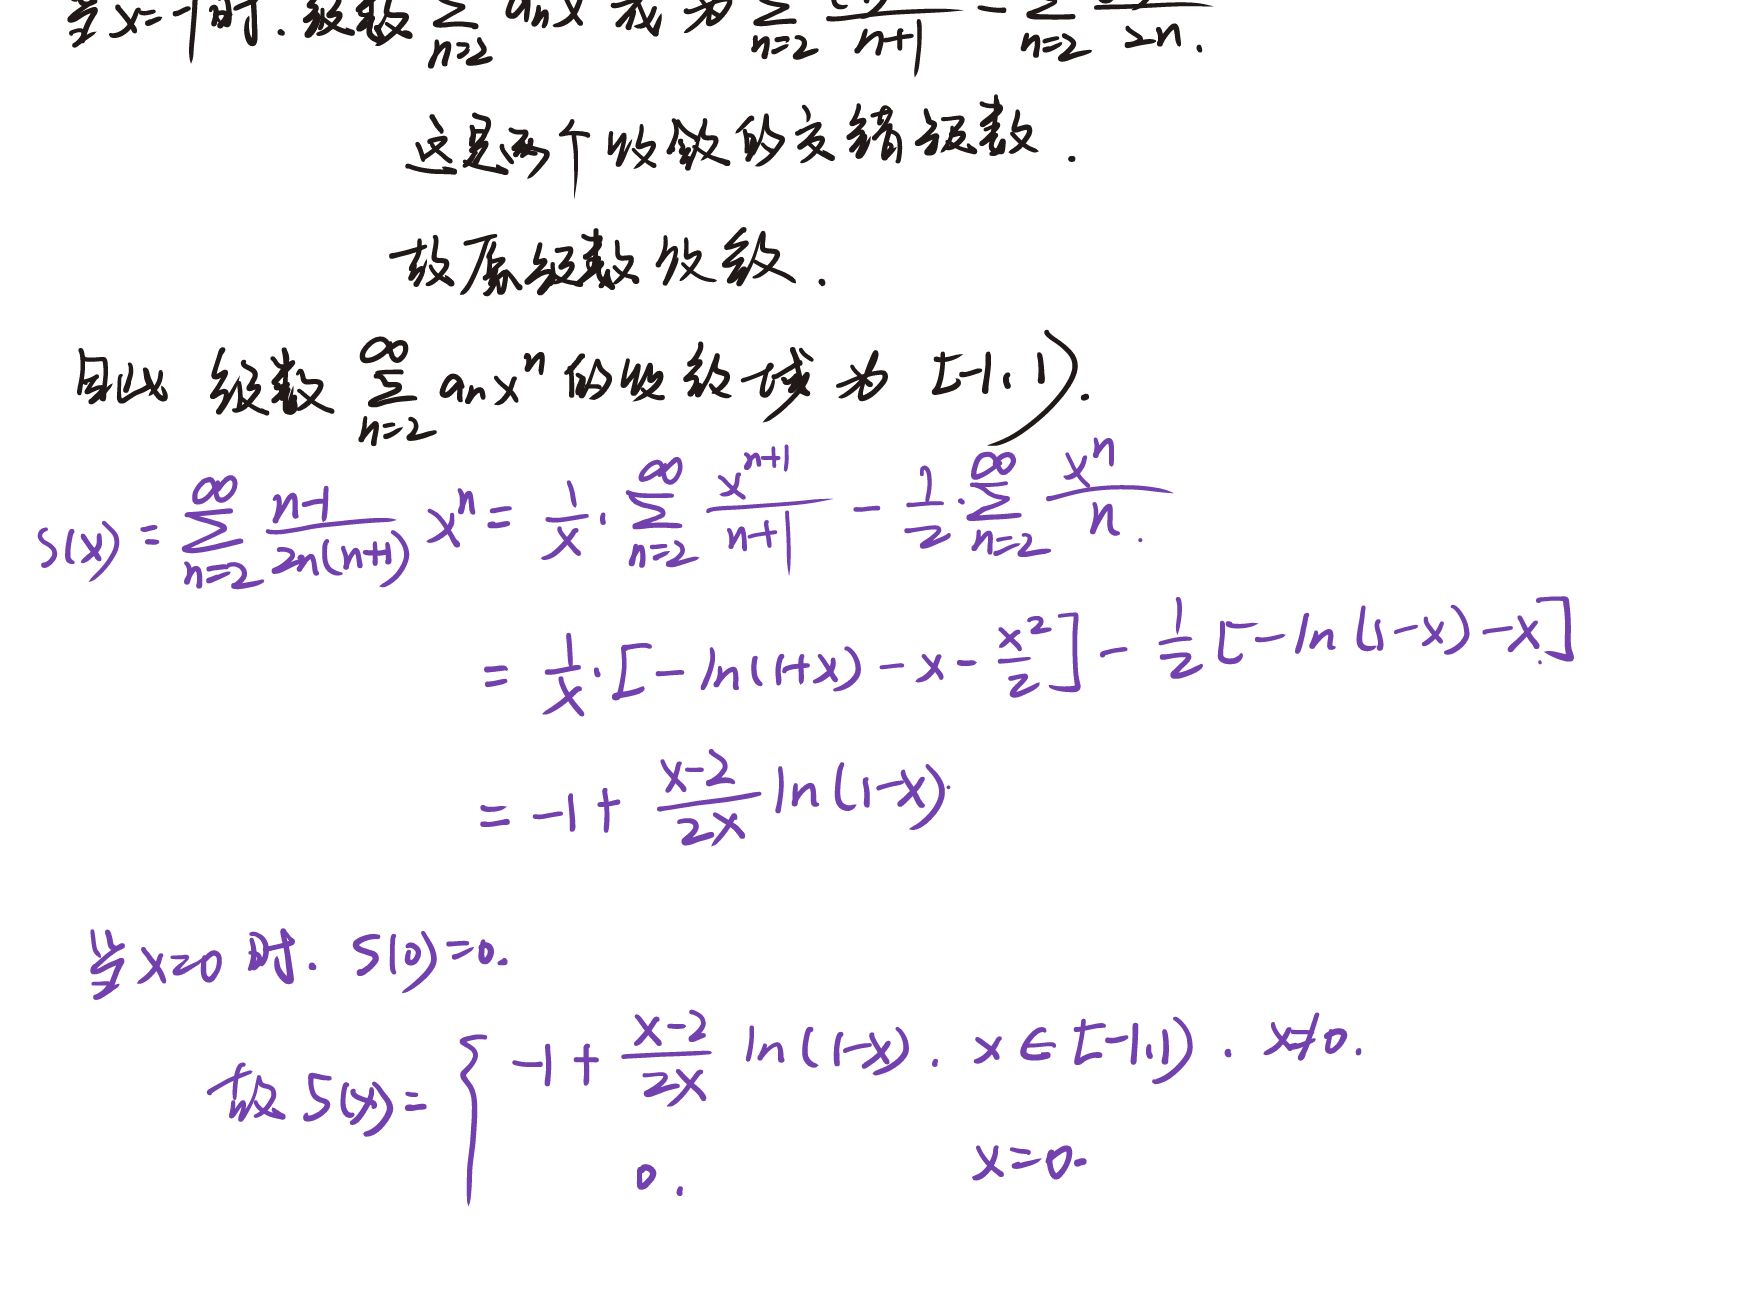 当x=-1时. 级数 ∑_{n=2} a_n x 成为 ∑_{n=2} /(n+1) - ∑_{n=2} /(2n).
这是两个收敛的交错级数.
故原级数收敛.
因此 级数 ∑_{n=2}^{∞} a_n x^n 的收敛域为 [-1,1).
S(x) = ∑_{n=2}^{∞} (n-1)/(2n(n+1)) x^n = 1/x · ∑_{n=2}^{∞} x^{n+1}/(n+1) - 1/2 · ∑_{n=2}^{∞} x^n/n.
= 1/x · [-ln(1+x) - x - x^2/2] - 1/2 [-ln(1-x) - x]
= -1 + (x-2)/(2x) ln(1-x)
当x=0时. S(0)=0.
故 S(x) = { -1 + (x-2)/(2x) ln(1-x). x∈[-1,1). x≠0.
0. x=0.